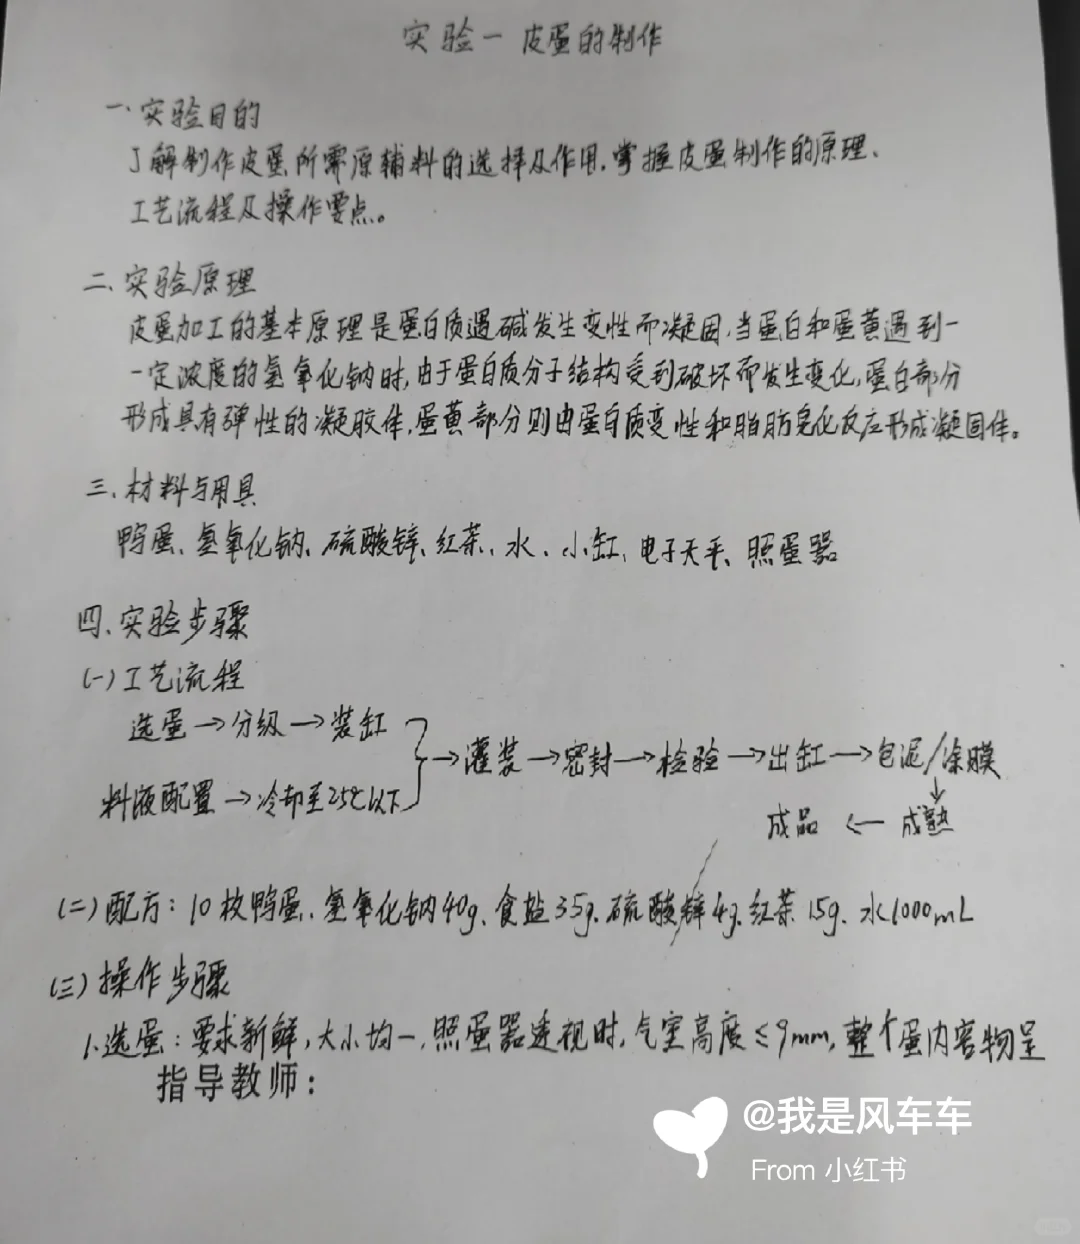 实验一 皮蛋的制作
一、实验目的
了解制作皮蛋所需原辅料的选择及作用,掌握皮蛋制作的原理、
工艺流程及操作要点。
二、实验原理
皮蛋加工的基本原理是蛋白质遇碱发生变性而凝固,当蛋白和蛋黄遇到一
一定浓度的氢氧化钠时,由于蛋白质分子结构受到破坏而发生变化,蛋白部分
形成具有弹性的凝胶体,蛋黄部分则由蛋白质变性和脂肪皂化反应形成凝固体。
三、材料与用具
鸭蛋、氢氧化钠、硫酸锌、红茶、水、小缸、电子天平、照蛋器
四、实验步骤
(一)工艺流程
选蛋→分级→装缸
→灌装→密封→检验→出缸→包泥/涂膜
料液配置→冷却至25℃以下
↓
成品 ← 成熟
(二)配方:10枚鸭蛋、氢氧化钠40g、食盐35g、硫酸锌4g、红茶15g、水1000mL
(三)操作步骤
1、选蛋:要求新鲜,大小均一,照蛋器透视时,气室高度≤9mm,整个蛋内容物呈
指导教师:
@我是风车车
From 小红书